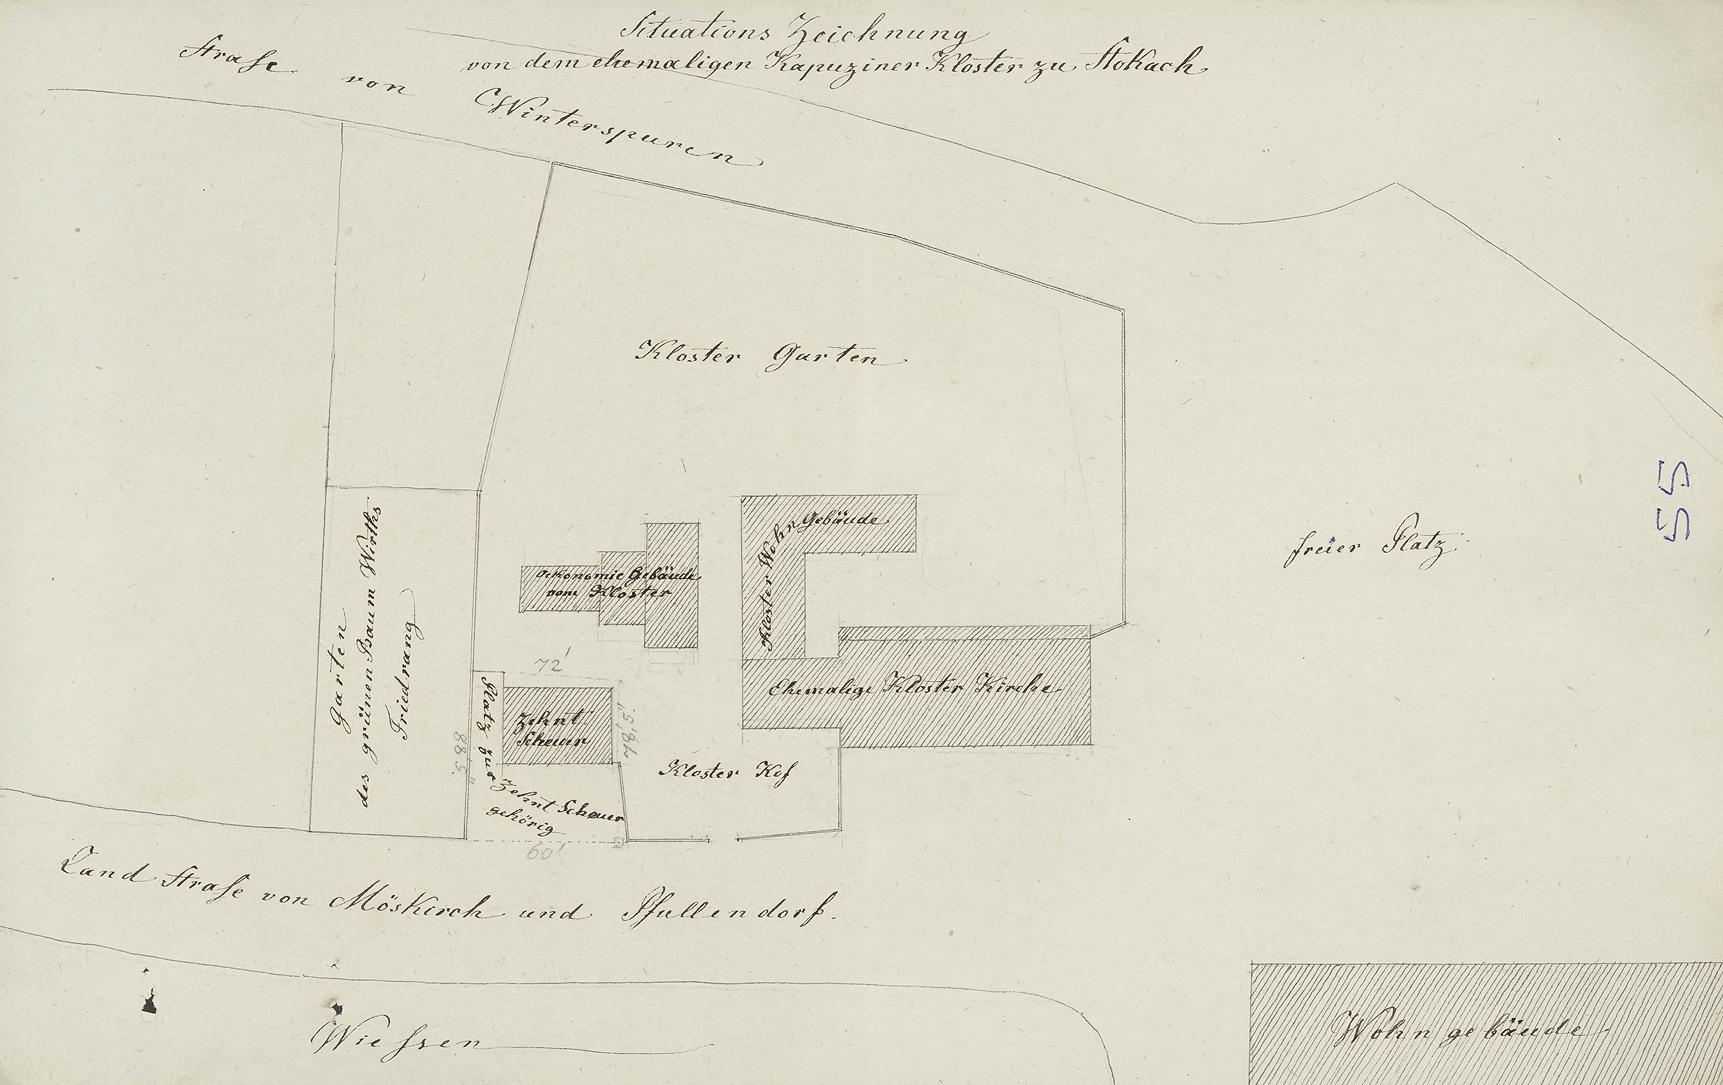 Situations Zeichnung
von dem ehemaligen Kapuziner Kloster zu Stokach
Strase von Winterspuren
Kloster Garten
freier Platz
55
Kloster Wohn Gebäude
Oekonomie Gebäude
vom Kloster
Garten
des grünen Baum Wirths
72'
Ehemalige Kloster Kirche
Zehnt
Scheuer
78,5'.
88,5'.
Platz zur
Zehnt Scheuer
gehörig
60'
Kloster Hof
Land Strase von Möskirch und Pfullendorf.
Wiessen
Wohngebäude